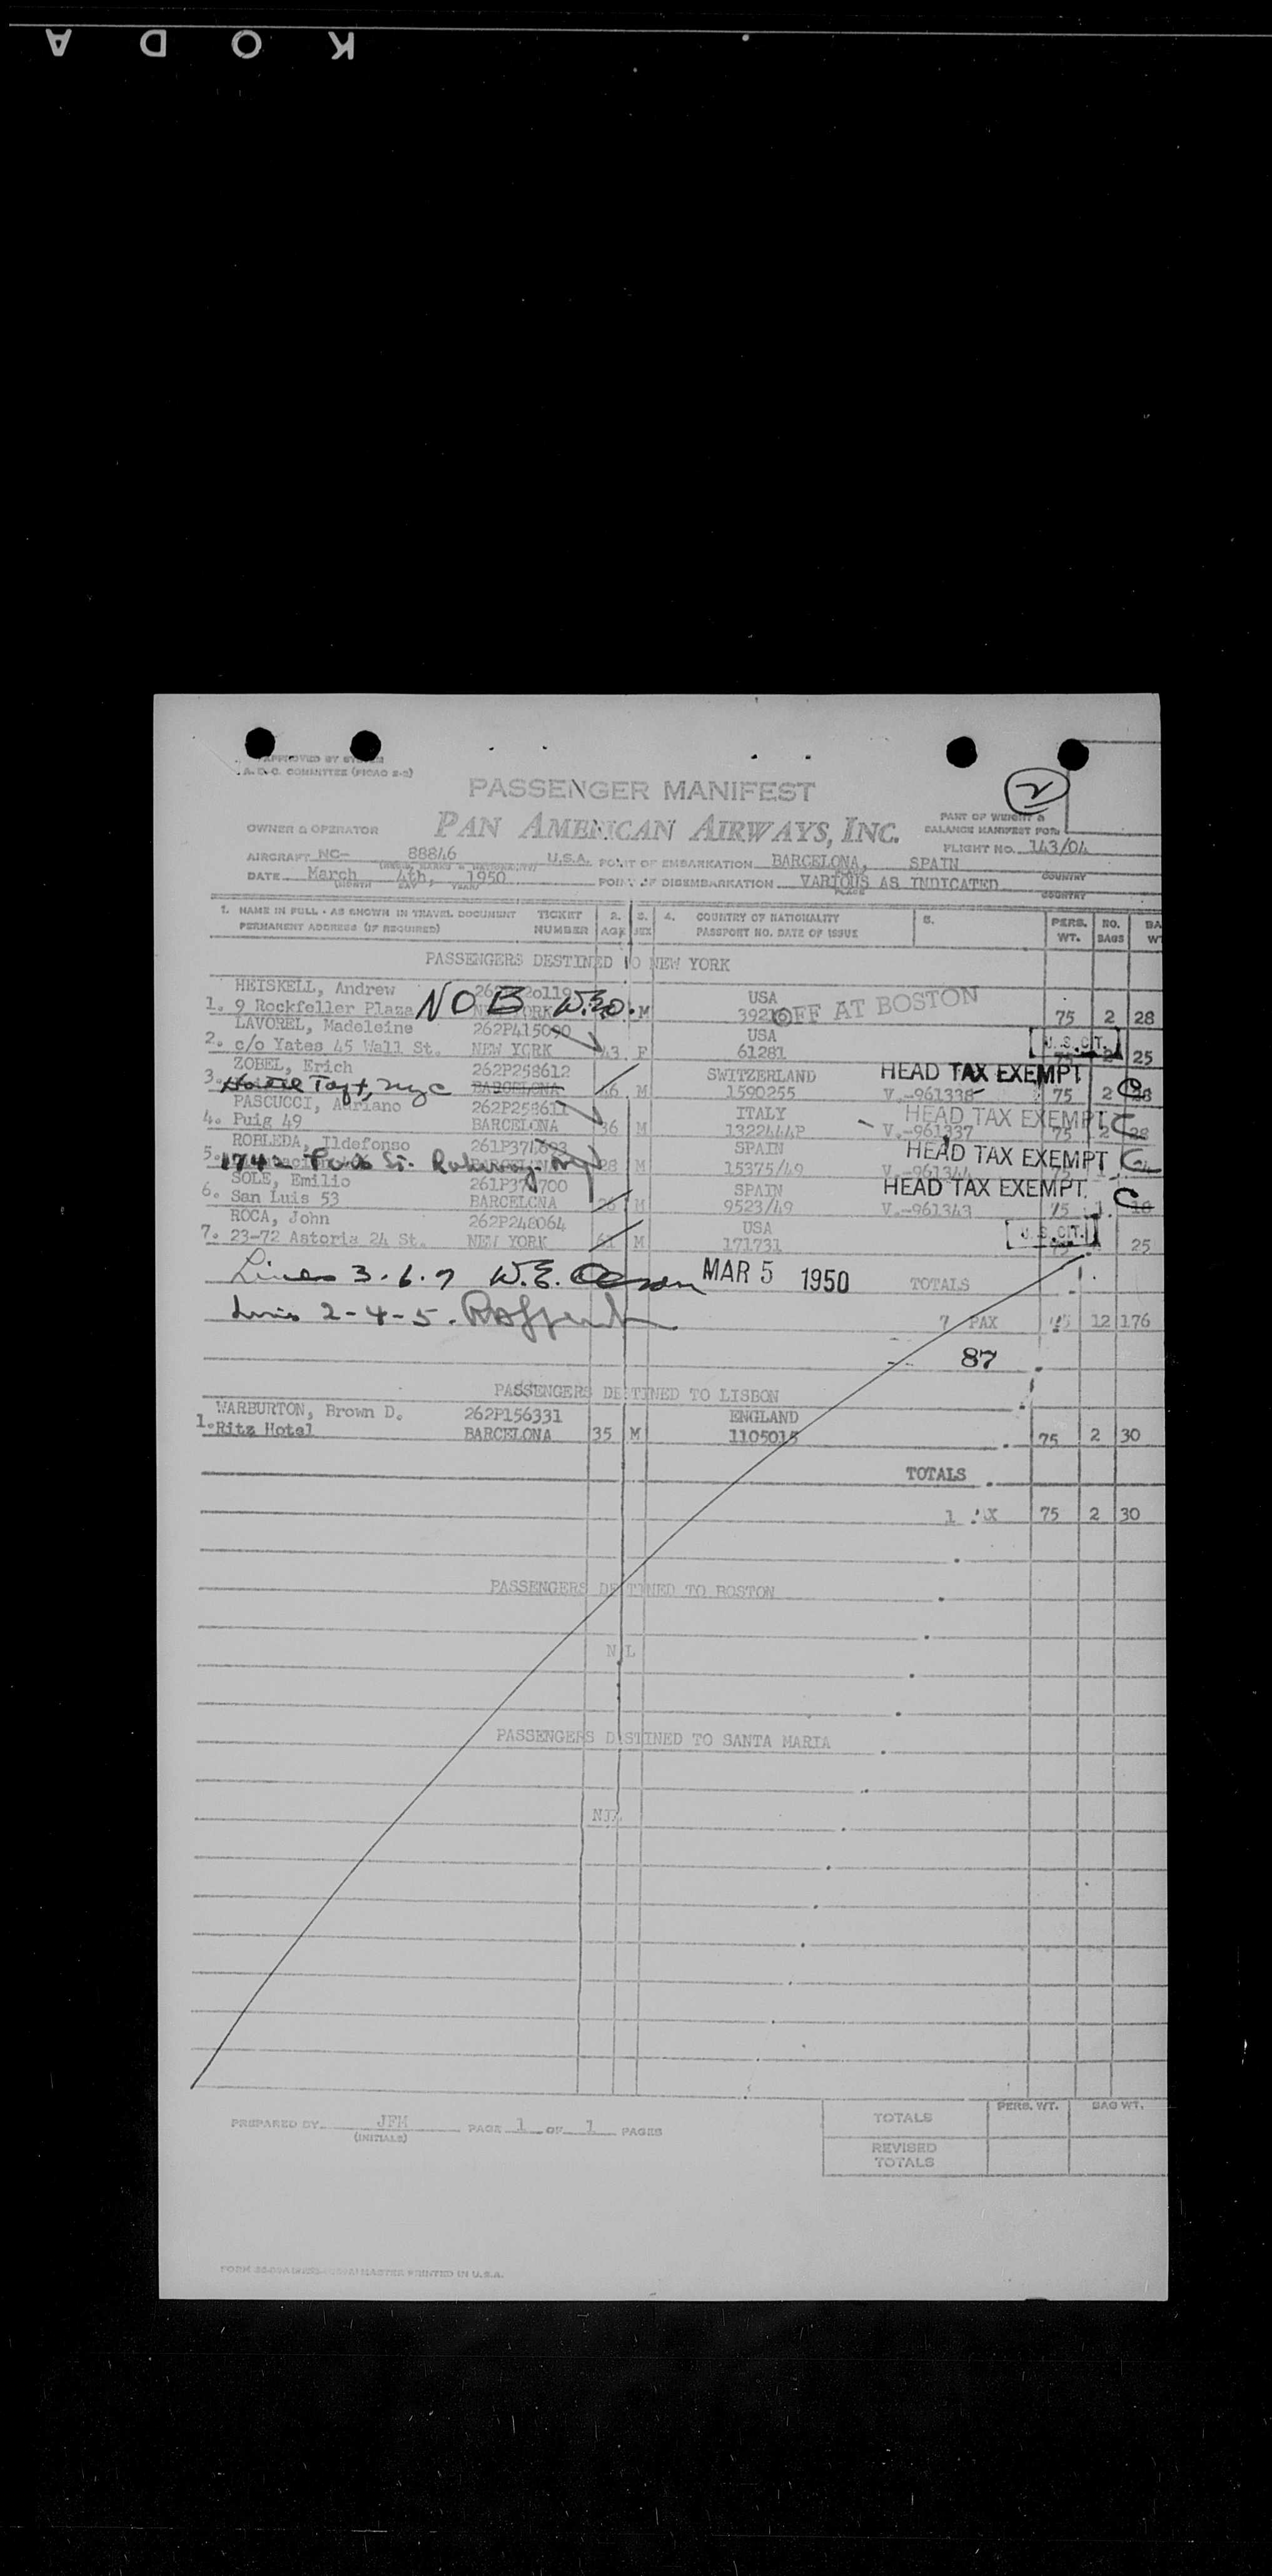 KODA
APPROVED BY
A. E. C. COMMITTEE (PICAO 2-2)
2
PASSENGER MANIFEST
PART OF WEIGHT &
OWNER & OPERATOR PAN AMERICAN AIRWAYS, INC. BALANCE MANIFEST FOR
FLIGHT NO. 143/04
AIRCRAFT NC- 88846 U.S.A. POINT OF EMBARKATION BARCELONA, SPAIN
COUNTRY
DATE March 4th, 1950 POINT OF DISEMBARKATION VARIOUS AS INDICATED
(MONTH DAY YEAR) PLACE COUNTRY
1. NAME IN FULL - AS SHOWN IN TRAVEL DOCUMENT TICKET 2. 3. 4. COUNTRY OF NATIONALITY 5. PERS. NO. BA
PERMANENT ADDRESS (IF REQUIRED) NUMBER AGE SEX PASSPORT NO. DATE OF ISSUE WT. BAGS W
PASSENGERS DESTINED TO NEW YORK
HEISKELL, Andrew USA
1. 9 Rockfeller Plaza NOB W.E.O. M OFF AT BOSTON 75 2 28
LAVOREL, Madeleine 262P415090 USA
2. c/o Yates 45 Wall St. NEW YORK 43 F 61281 U.S.CIT. 75 2 25
ZOBEL, Erich 262P258612 SWITZERLAND HEAD TAX EXEMPT
3. Hotel Taft, nyc BARCELONA 46 M 1590255 V.-961338 75 2 28
PASCUCCI, Adriano 262P258611 ITALY HEAD TAX EXEMPT
4. Puig 49 BARCELONA 36 M 1322444P V.-961337 75 2 28
ROBLEDA, Ildefonso SPAIN HEAD TAX EXEMPT
5. 1742 St. Rahway 28 M 15375/49 V.-961344
SOLE, Emilio SPAIN HEAD TAX EXEMPT
6. San Luis 53 BARCELONA 26 M 9523/49 V.-961343 75 1 18
ROCA, John 262P248064 USA
7. 23-72 Astoria 24 St. NEW YORK 61 M 171731 U.S.CIT. 75 25
Lines 3.6.7 W.E. MAR 5 1950 TOTALS
Lines 2-4-5.
7 PAX 12 176
87
PASSENGERS DESTINED TO LISBON
WARBURTON, Brown D. 262P156331 ENGLAND
1. Ritz Hotel BARCELONA 35 M 1105015 75 2 30
TOTALS
1 PAX 75 2 30
PASSENGERS DESTINED TO BOSTON
NIL
PASSENGERS DESTINED TO SANTA MARIA
NIL
PREPARED BY JFM PAGE 1 OF 1 PAGES
(INITIALS)
PERS. WT. BAG WT.
TOTALS
REVISED
TOTALS
MASTER PRINTED IN U.S.A.